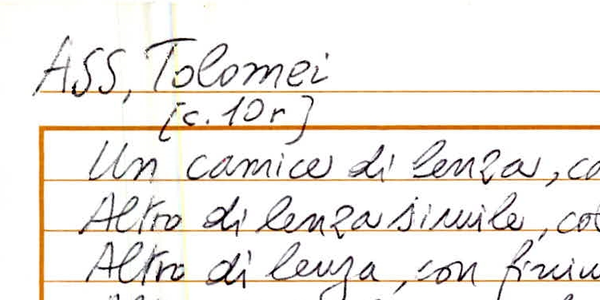 ASS, Tolomei
[c. 10r]
Un camice di lenza, co
Altro di lenza simile, col
Altro di lenza, con finim